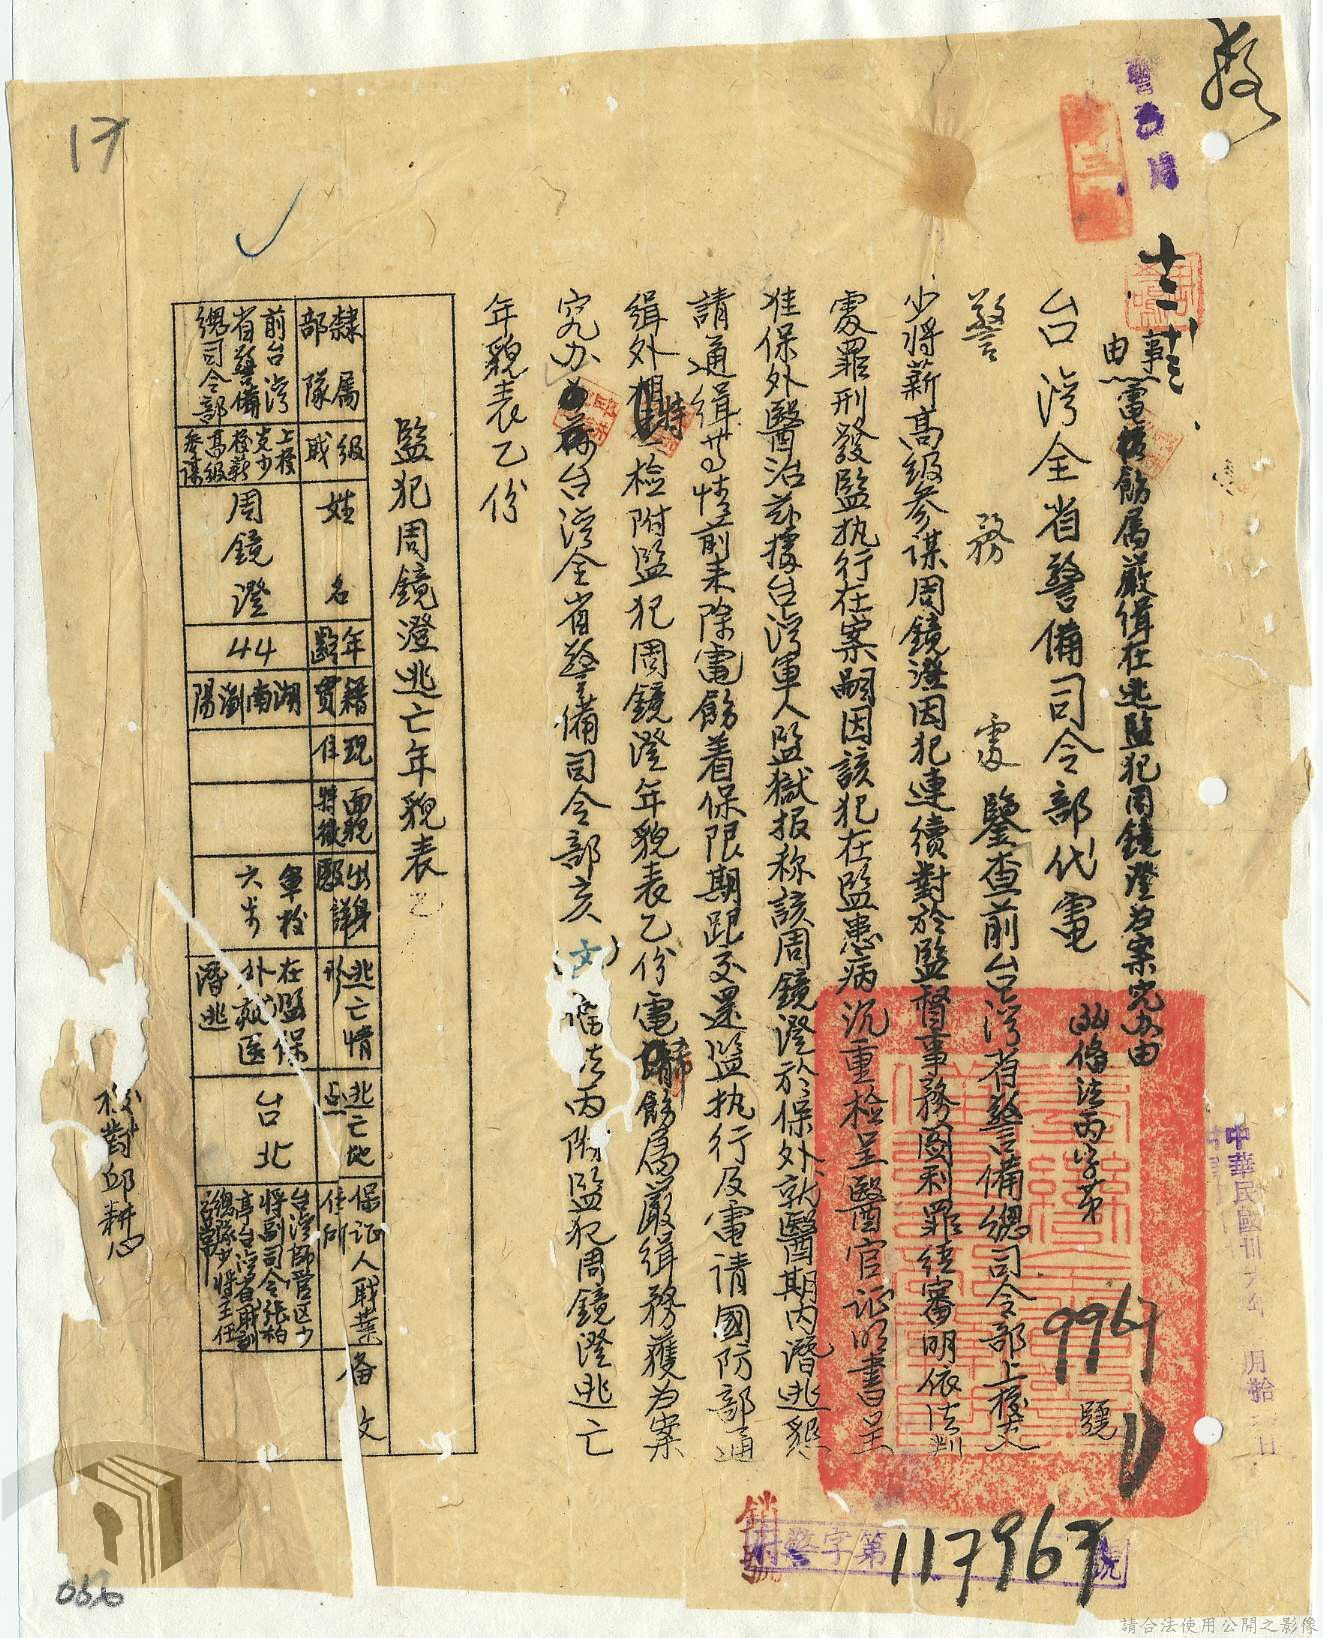 十二 廿三
事由
為電希飭属嚴緝在逃監犯周鏡澄為案究办由
台湾全省警備司令部代電
備法丙字第
9967
號
警務處鑒查前台湾省警備總司令部上校支
少將薪高級參謀周鏡澄因犯連續對於監督事務圖利罪経審明依法判
處罪刑發監执行在案嗣因該犯在監患病沉重檢呈醫官证明書呈
准保外醫治茲據台湾軍人監獄报称該周鏡澄於保外就醫期內潛逃懇
請通緝等情前来除電飭着保限期跟交還監执行及電请國防部通
緝外特檢附監犯周鏡澄年貌表乙份電希飭属嚴緝務獲為案
究办為荷台湾全省警備司令部亥(文)備法丙附監犯周鏡澄逃亡
年貌表乙份
監犯周鏡澄逃亡年貌表
隸属部隊
級职
姓名
年齡
籍貫
現住
面貌特徵
出身詳歷
逃亡情形
逃亡地点
保证人职業住所
备文
前台湾省警備總司令部
上校支少校薪高級參謀
周鏡澄
44
湖南瀏陽
軍校六期
在監保外就医潛逃
台北
台湾師管区少將副司令張柏亭台湾省
校對邱耕心
中華民國卅
月拾
日
銷號
府警字第117967號
17
請合法使用公開之影像